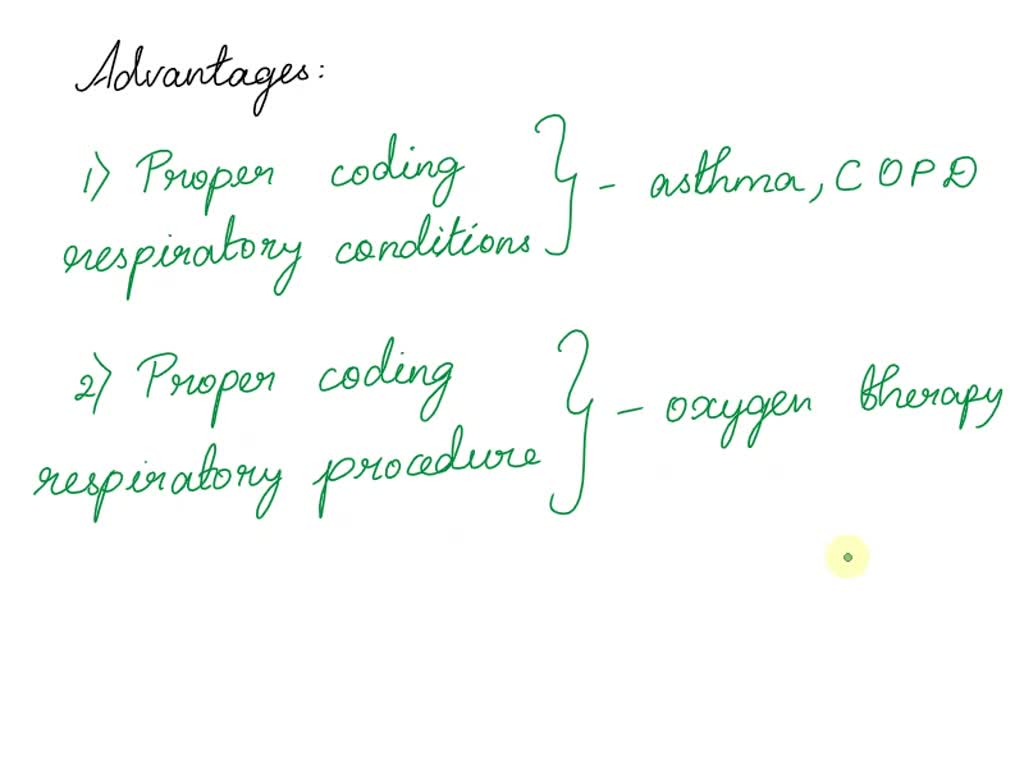 Advantages:
1) Proper coding
respiratory conditions } - asthma, COPD
2) Proper coding
respiratory procedure } - oxygen therapy